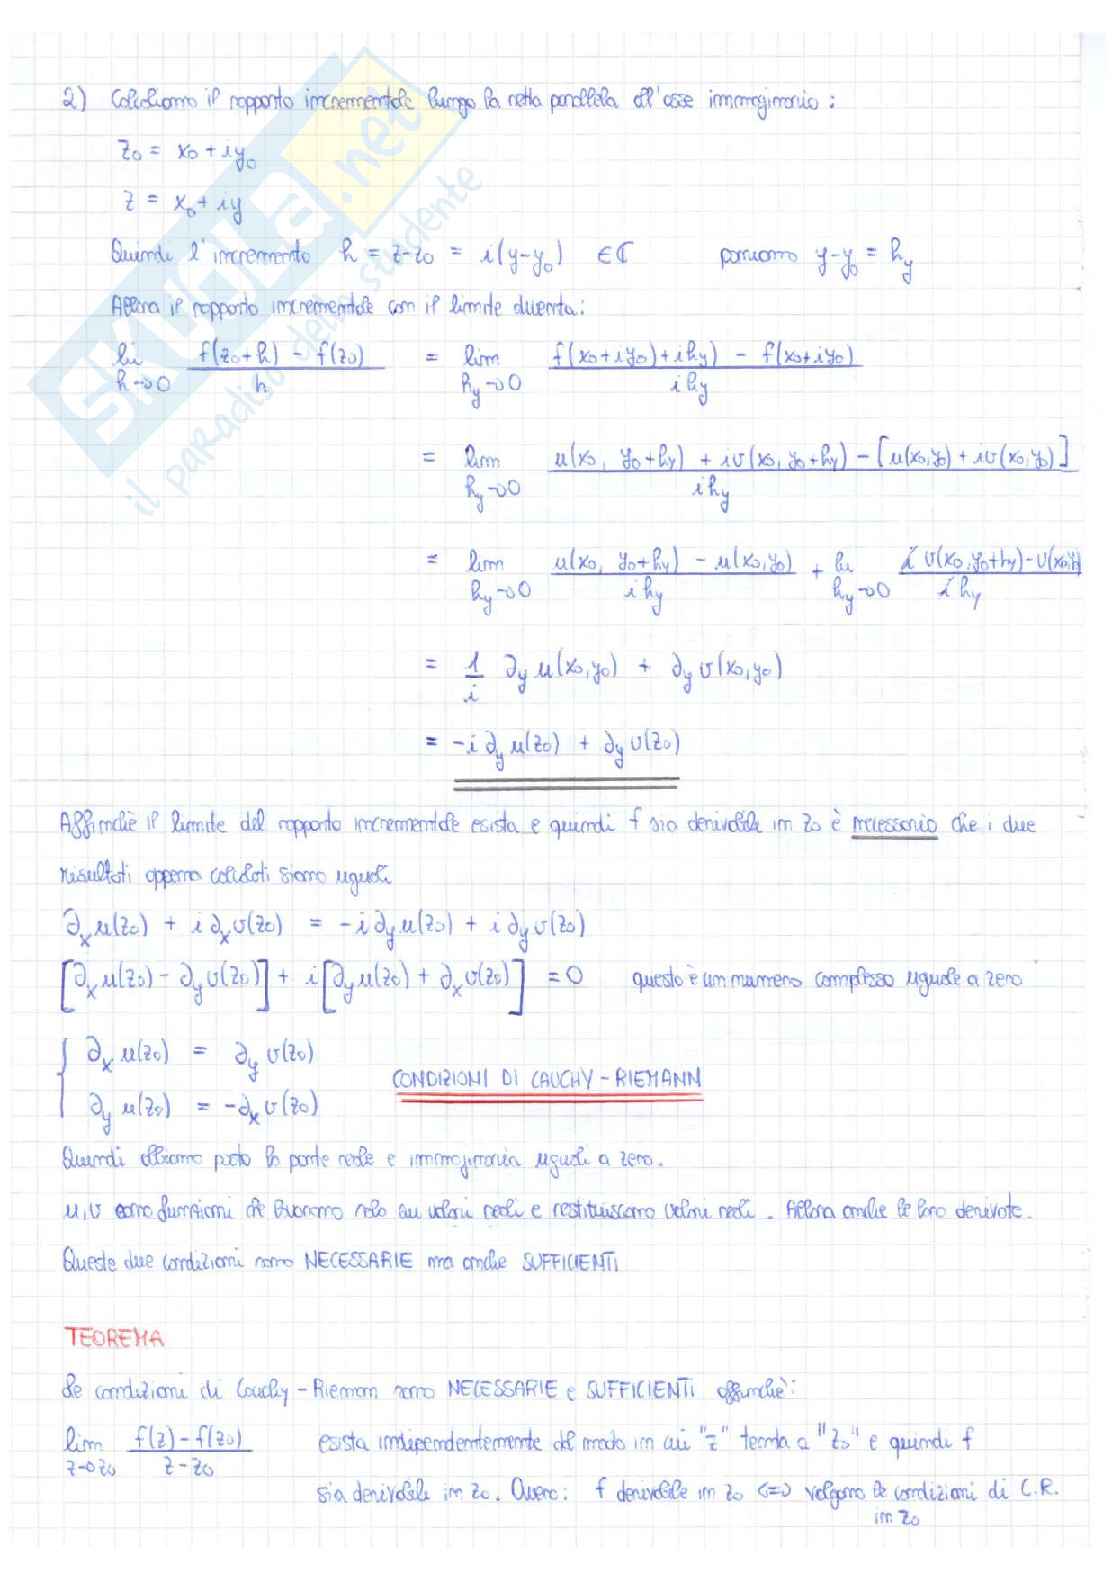 2) Calcoliamo il rapporto incrementale lungo la retta parallela all'asse immaginario :
z₀ = x₀ + iy₀
z = x₀ + iy
Quindi l'incremento h = z-z₀ = i(y-y₀) ∈ℂ poniamo y-y₀ = h_y
Allora il rapporto incrementale con il limite diventa:
li h→0 f(z₀+h) - f(z₀) / h = lim h_y→0 f(x₀+iy₀)+ih_y) - f(x₀+iy₀) / ih_y
= lim h_y→0 u(x₀, y₀+h_y) + iv(x₀, y₀+h_y) - [u(x₀,y₀) + iv(x₀,y₀)] / ih_y
= lim h_y→0 u(x₀, y₀+h_y) - u(x₀,y₀) / ih_y + li h_y→0 i v(x₀,y₀+h_y)-v(x₀,y₀) / i h_y
= 1/i ∂_y u(x₀,y₀) + ∂_y v(x₀,y₀)
= -i ∂_y u(z₀) + ∂_y v(z₀)
Affinchè il limite del rapporto incrementale esista e quindi f sia derivabile in z₀ è necessario che i due
risultati appena calcolati siano uguali
∂_x u(z₀) + i ∂_x v(z₀) = -i ∂_y u(z₀) + i ∂_y v(z₀)
[∂_x u(z₀) - ∂_y v(z₀)] + i [∂_y u(z₀) + ∂_x v(z₀)] = 0 questo è un numero complesso uguale a zero
{ ∂_x u(z₀) = ∂_y v(z₀)
CONDIZIONI DI CAUCHY-RIEMANN
∂_y u(z₀) = -∂_x v(z₀)
Quindi abbiamo posto la parte reale e immaginaria uguali a zero.
u,v sono funzioni che lavorano solo su valori reali e restituiscono valori reali. Allora anche le loro derivate.
Queste due condizioni sono NECESSARIE ma anche SUFFICIENTI
TEOREMA
Le condizioni di Cauchy-Rieman sono NECESSARIE e SUFFICIENTI affinchè:
lim z→z₀ f(z)-f(z₀) / z-z₀ esista indipendentemente dal modo in cui "z" tenda a "z₀" e quindi f
sia derivabile in z₀. Ovvero: f derivabile in z₀ <=> valgono le condizioni di C.R.
in z₀
SKUOLA.net
il paradiso dello studente